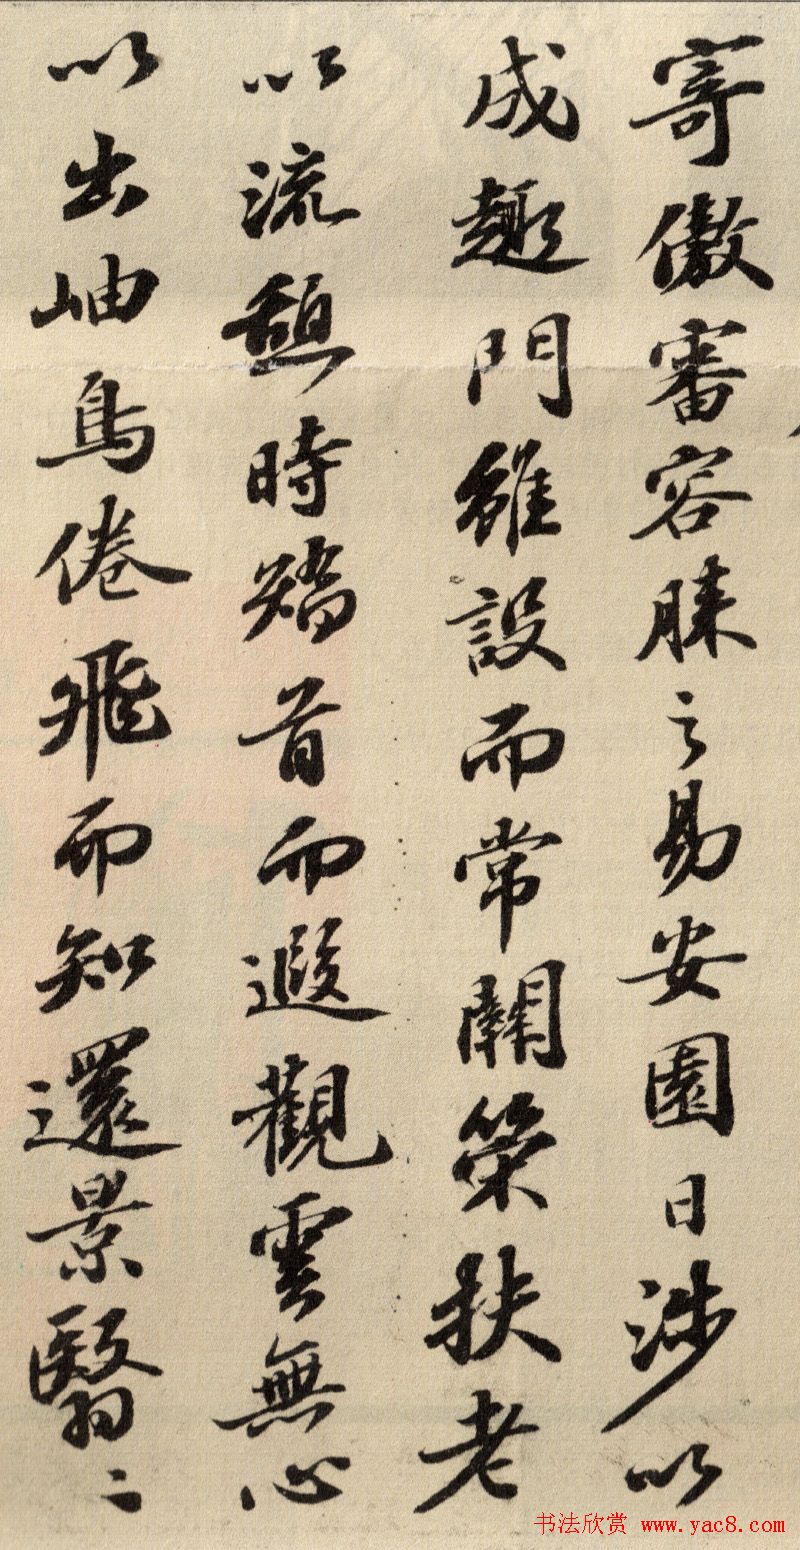 寄傲審容膝之易安園日涉以
成趣門雖設而常關策扶老
以流憩時矯首而遐觀雲無心
以出岫鳥倦飛而知還景翳〻
书法欣赏 www.yac8.com